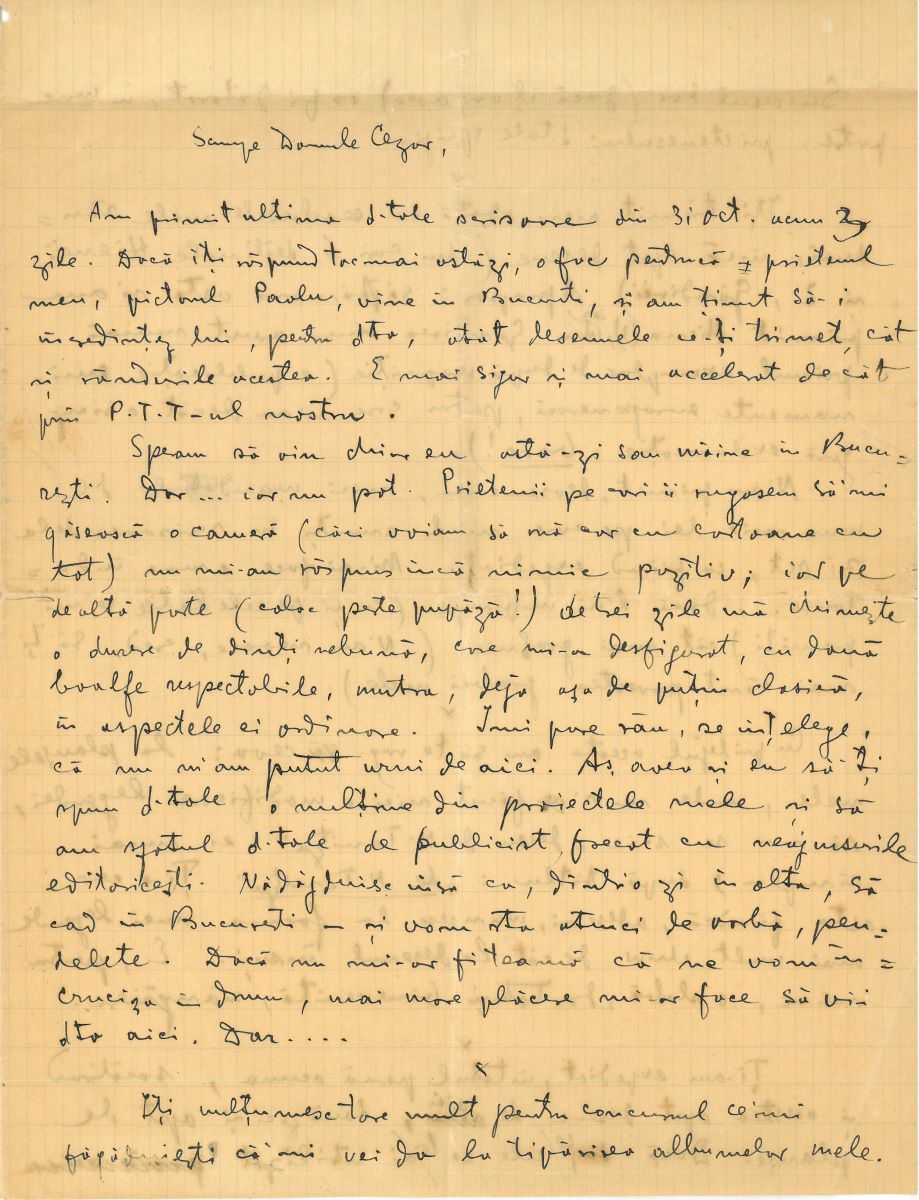 Scumpe Domnule Cezar,
Am primit ultima d-tale scrisoare din 31 oct. acum 3
zile. Dacă îți răspund tocmai astăzi, o fac pentrucă prietenul
meu, pictorul Pavlu, vine în București, și am ținut să-i
încredințez lui, pentru dta, atât desenele ce-ți trimet, cât
și rândurile acestea. E mai sigur și mai accelerat decât
prin P.T.T-ul nostru.
Speram să vin chiar eu astă-zi sau mâine în Bucu-
rești. Dar... iar nu pot. Prietenii pe cari îi rugasem să'mi
găsească o cameră (căci voiam să mă car cu cartoane cu
tot) nu mi-au răspuns încă nimic pozitiv; iar pe
de altă parte (colac peste pupăză!) de trei zile mă chinuește
o durere de dinți nebună, care mi-a desfigurat, cu două
boalfe respectabile, mutra, deja așa de puțin clasică,
în aspectele ei ordinare. Îmi pare rău, se înțelege,
că nu m'am putut urni de aici. Aș avea și eu să-ți
spun d-tale o mulțime din proiectele mele și să
am sfatul d-tale de publicist frecat cu neajunsurile
editoricești. Nădăjduisc însă ca, dintr'o zi în alta, să
cad în București — și vom sta atunci de vorbă, pen-
delete. Dacă nu mi-ar fi teamă că ne vom în-
cruciza în drum, mai mare plăcere mi-ar face să vii
dta aici. Dar....
x
Iți mulțumesc tare mult pentru concursul ce'mi
făgăduiești că'mi vei da la tipărirea albumelor mele.